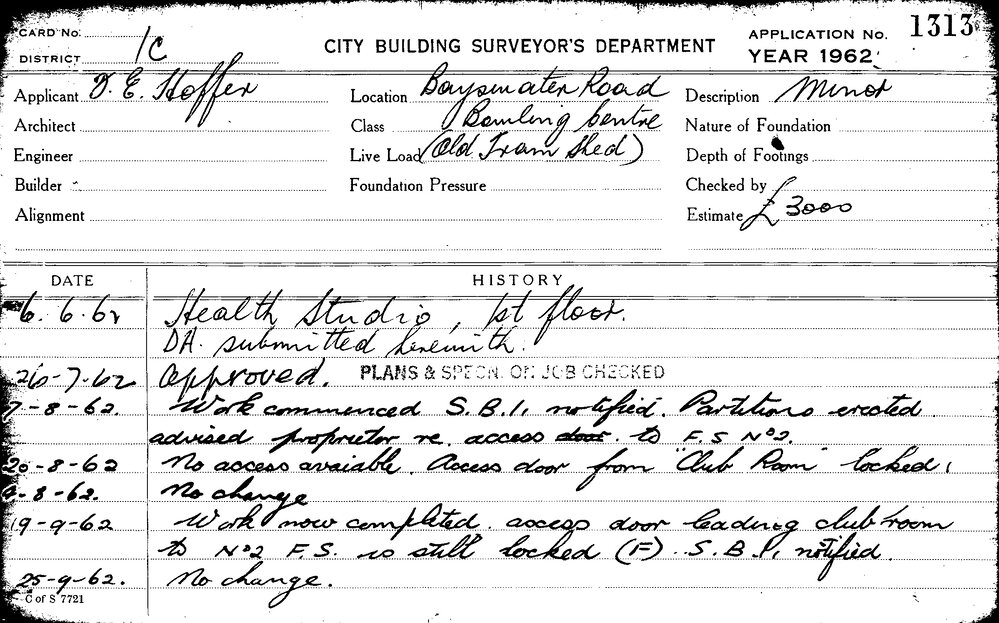 CARD No.
DISTRICT 1C
CITY BUILDING SURVEYOR'S DEPARTMENT
APPLICATION No. 1313
YEAR 1962
Applicant V. E. Hoffer
Location Bayswater Road
Description Minor
Architect
Class Bowling Centre
Nature of Foundation
Engineer
Live Load (Old Tram Shed)
Depth of Footings
Builder
Foundation Pressure
Checked by
Alignment
Estimate £3000
DATE HISTORY
6.6.62 Health Studio, 1st floor.
DA. submitted herewith.
26-7-62 Approved. PLANS & SPECN. ON JOB CHECKED
7-8-62. Work commenced S.B.I. notified. Partitions erected
advised proprietor re. access door. to F.S Nº2.
20-8-62 No access avaiable. Access door from "Club Room" locked.
-8-62. No change
19-9-62 Work now completed. access door leading club room
to Nº2 F.S. is still locked (F). S.B.I. notified.
25-9-62. No change.
C of S 7721